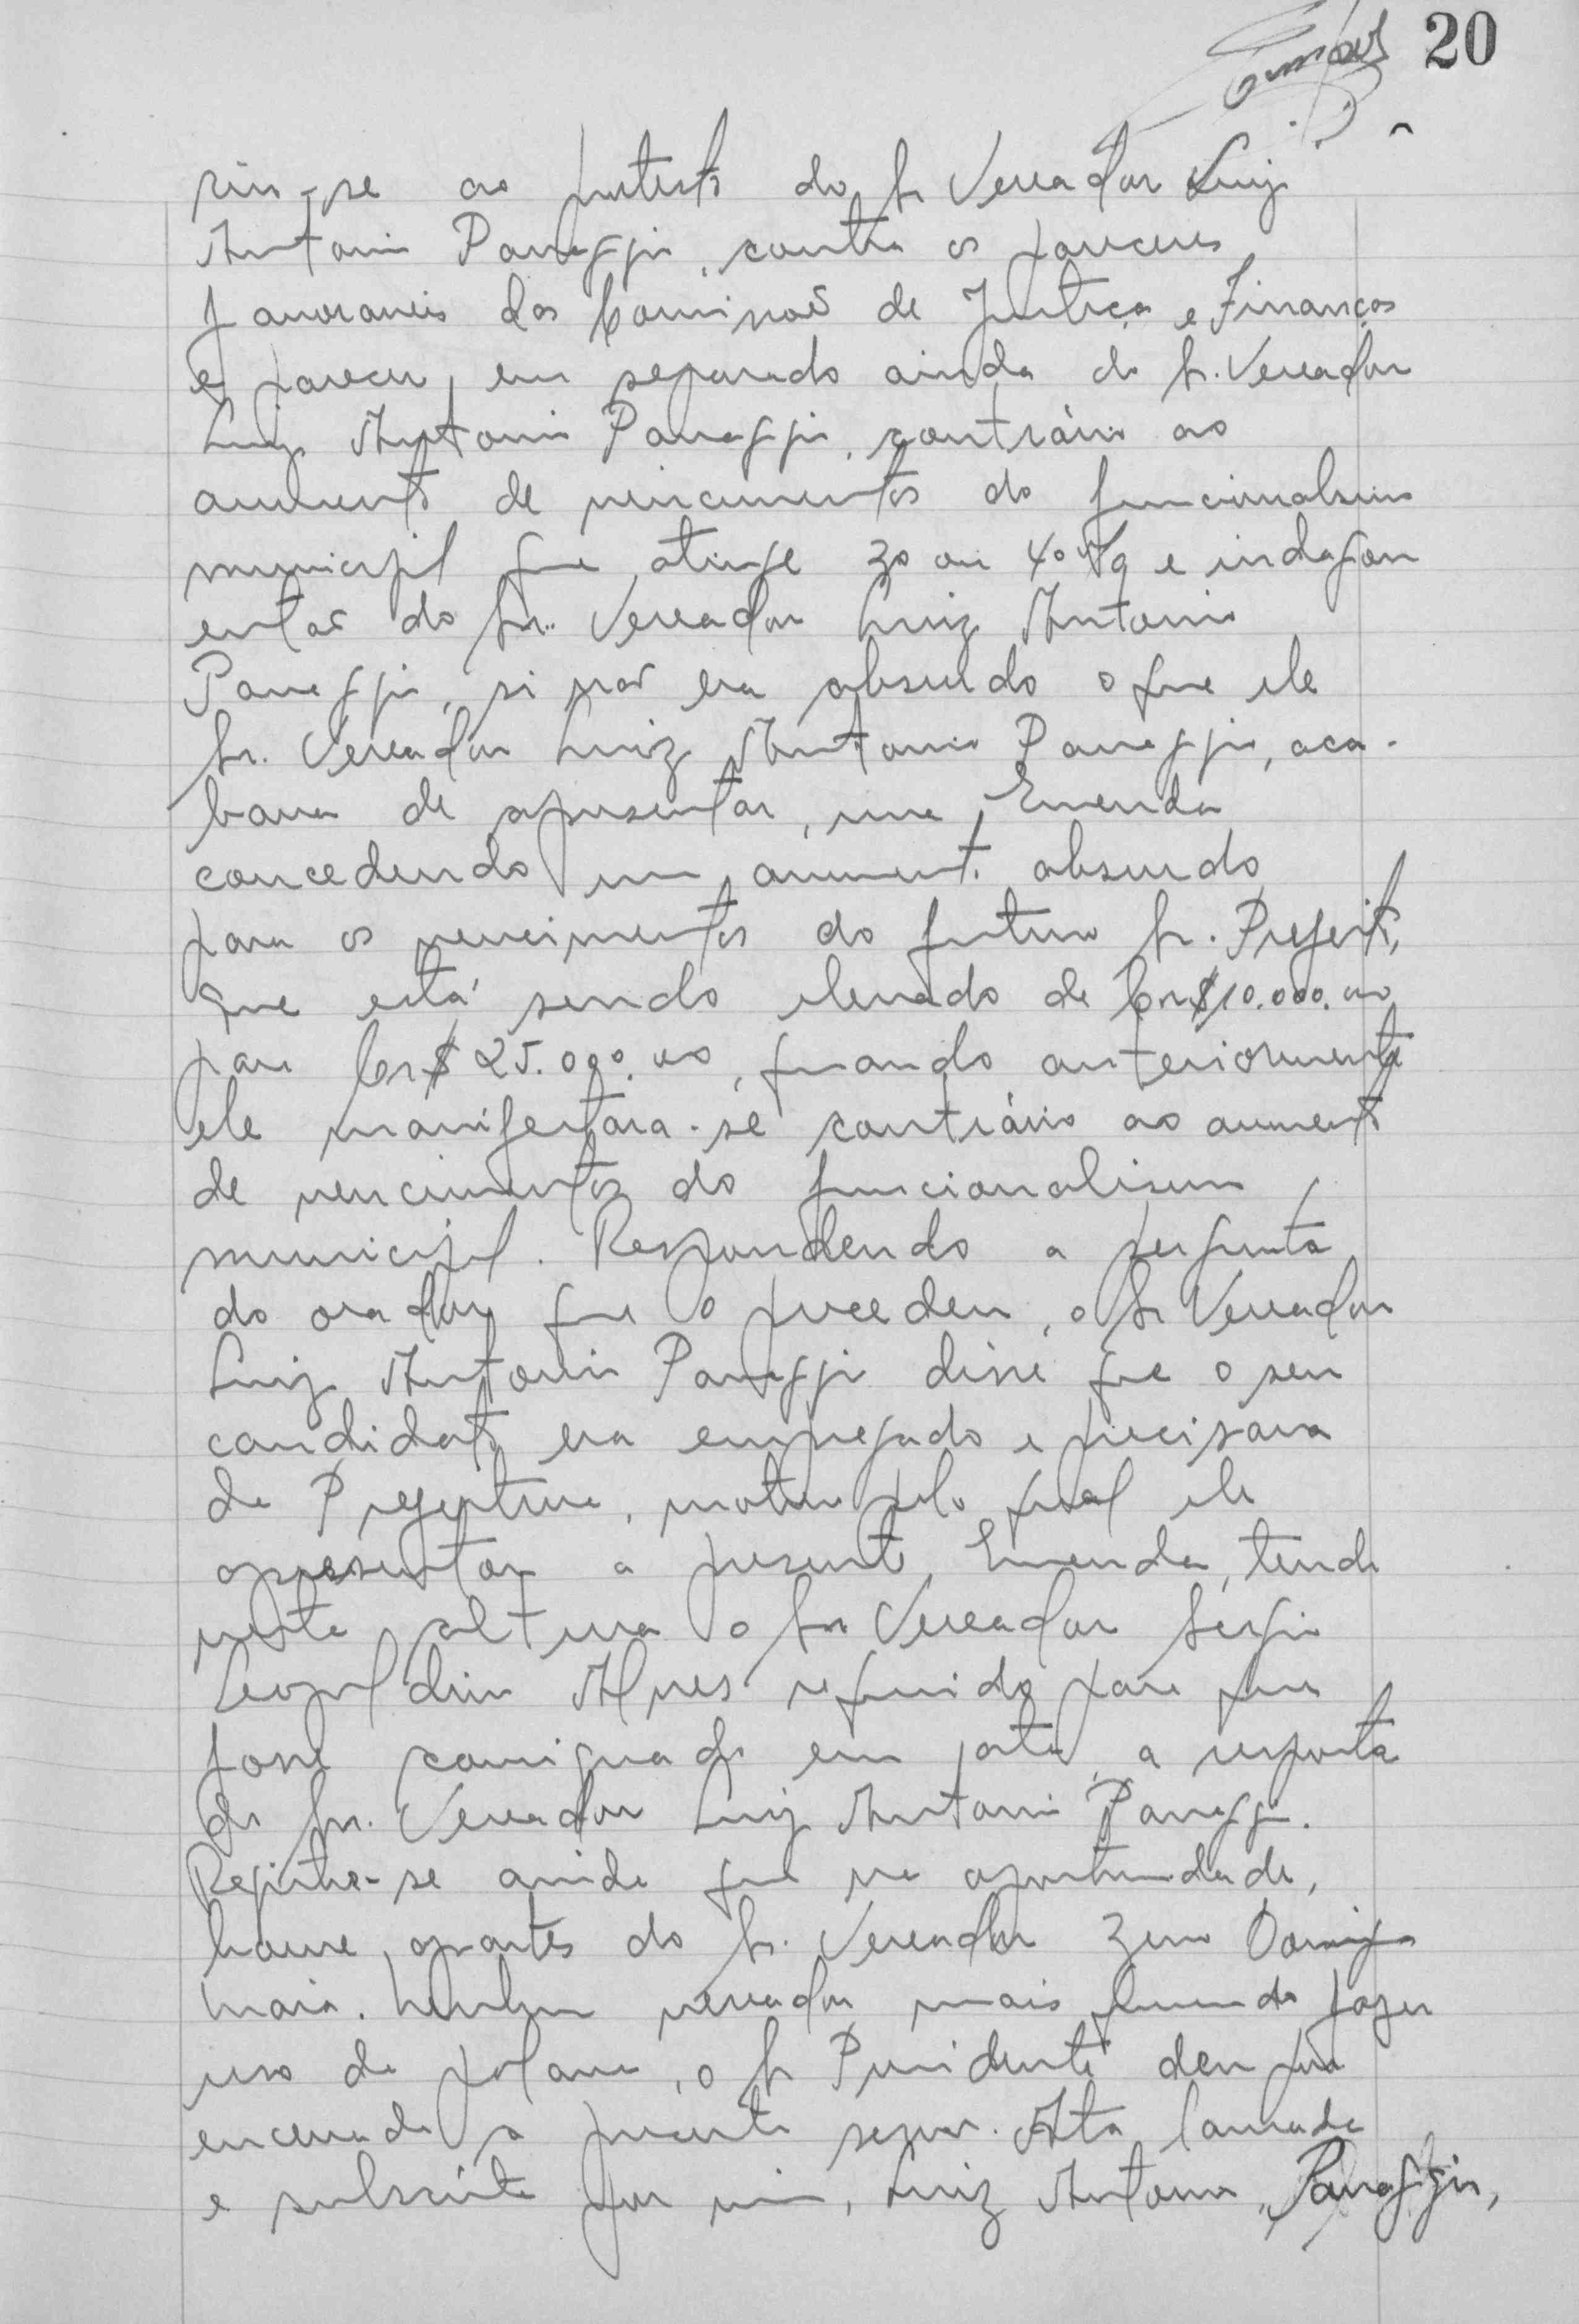 20
riu-se ao protesto do Sr Vereador Luiz
Antonio Panaggio, contra os pareceres
favoraveis das Comissões de Justiça e Finanças
e parecer, em separado ainda do Sr. Vereador
Luiz Antonio Panaggio, contrário ao
aumento de vencimentos do funcionalismo
municipal que atinge 30 ou 40% e indagou
então do Sr. Vereador Luiz Antonio
Panaggio, si não era absurdo o que ele
Sr. Vereador Luiz Antonio Panaggio, aca-
bava de apresentar, uma Emenda
concedendo um aumento absurdo
para os vencimentos do futuro Sr. Prefeito,
que está sendo elevado de Cr$10.000,00
para Cr$25.000,00, quando anteriormente
ele manifestara-se contrário ao aumento
de vencimentos do funcionalismo
municipal. Respondendo a pergunta
do orador que o precedeu, o Sr Vereador
Luiz Antonio Panaggio disse que o seu
candidato era empregado e precisava
da Prefeitura, motivo pelo qual ele
apresentou a presente Emenda, tendo
nesta altura o Sr Vereador Sergio
Leopoldino Alves requerido para que
fosse consignado em ata, a resposta
do Sr. Vereador Luiz Antonio Panaggio.
Registra-se ainda que na oportunidade,
houve apartes do Sr. Vereador Zeno
Maia. Nenhum vereador mais querendo fazer
uso da palavra, o Sr Presidente deu por
encerrada a presente sessão. Ata lavrada
e subscrita por mim, Luiz Antonio Panaggio,